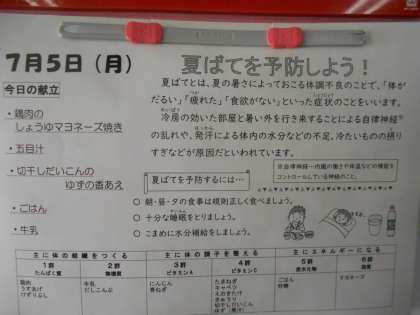 7月5日（月）
夏ばてを予防しよう！
今日の献立
・鶏肉の
しょうゆマヨネーズ焼き
・五目汁
・切干しだいこんの
ゆずの香あえ
・ごはん
・牛乳
夏ばてとは、夏の暑さによっておこる体調不良のことで、「体が
だるい」「疲れた」「食欲がない」といった症状のことをいいます。
冷房の効いた部屋と暑い外を行き来することによる自律神経※
の乱れや、発汗による体内の水分などの不足、冷たいものの摂り
すぎなどが原因だといわれています。
※自律神経…内臓の働きや体温などの機能を
コントロールしている神経のこと。
夏ばてを予防するには…
○ 朝・昼・夕の食事は規則正しく食べましょう。
○ 十分な睡眠をとりましょう。
○ こまめに水分補給をしましょう。
主に体の組織をつくる 主に体の調子を整える 主にエネルギーになる
1群 2群 3群 4群 5群 6群
たんぱく質 無機質 ビタミンA ビタミンC 炭水化物 脂質
鶏肉 牛乳 にんじん たまねぎ ごはん マヨネーズ
うすあげ だしこんぶ 青ねぎ キャベツ 砂糖
けずりぶし えのきたけ
きゅうり
切干しだいこん
ゆず（果汁）